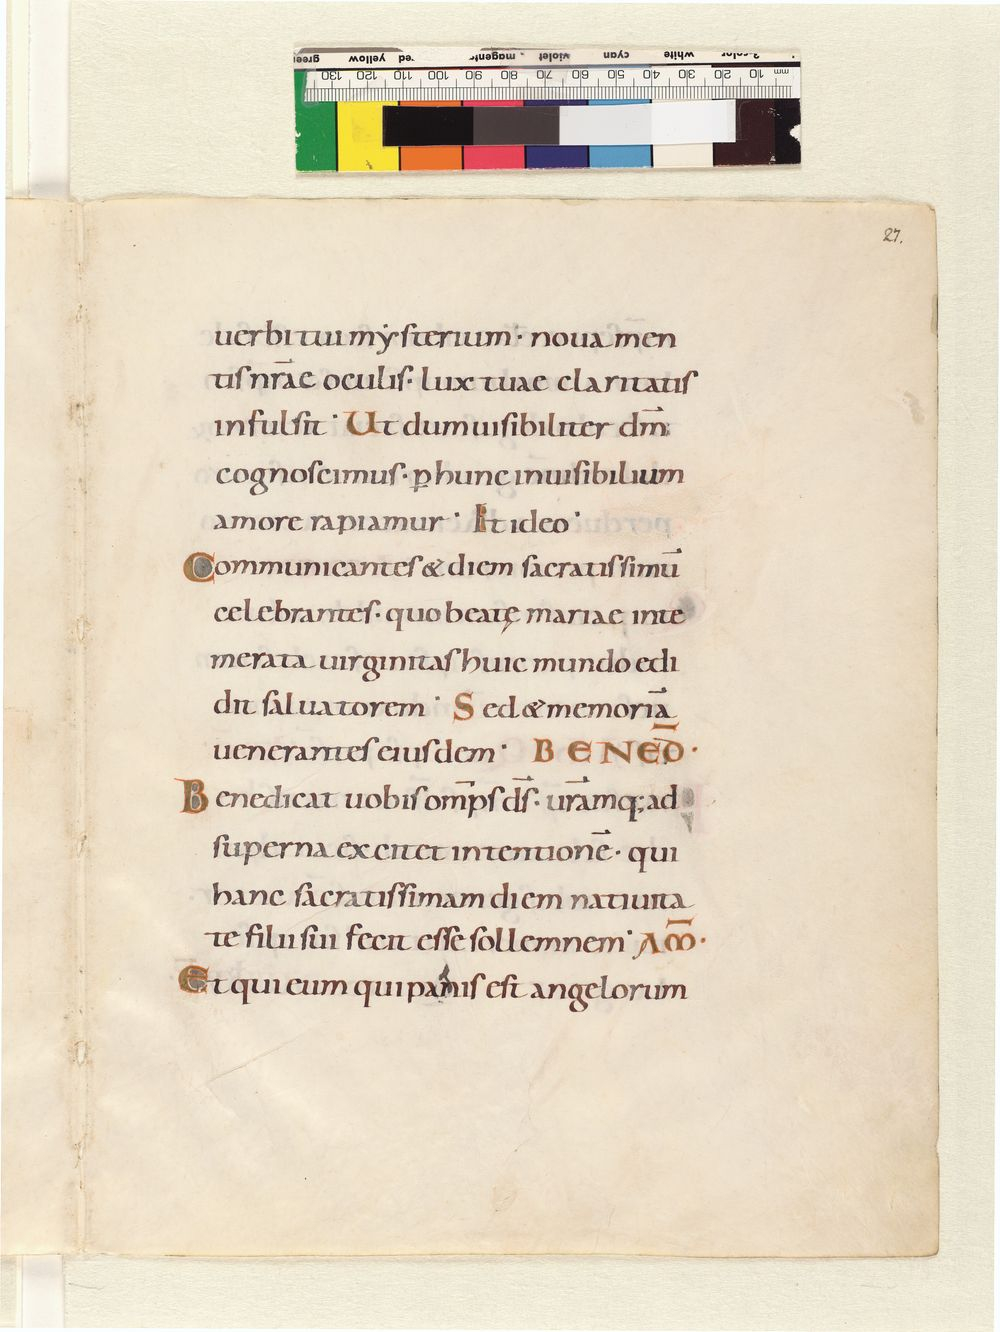 green yellow red magenta violet cyan white 3-color
130 120 110 100 90 80 70 60 50 40 30 20 10 mm
27.
uerbi tui mẏsterium · noua men
tis nr̄ae oculis · lux tuae claritatis
infulsit · Ut dum uisibiliter dm̄
cognoscimus · ꝑ hunc inuisibilium
amore rapiamur · Et ideo ·
Communicantes & diem sacratissimū
celebrantes · quo beatę mariae inte
merata uirginitas huic mundo edi
dit saluatorem · Sed & memoriā
uenerantes eiusdem · BENED̄ ·
Benedicat uobis omp̄s ds̄ · ur̄amq; ad
superna excitet intentionē · qui
hanc sacratissimam diem natiuita
te filii sui fecit esse sollemnem · AM̄ ·
Et qui eum qui panis est angelorum